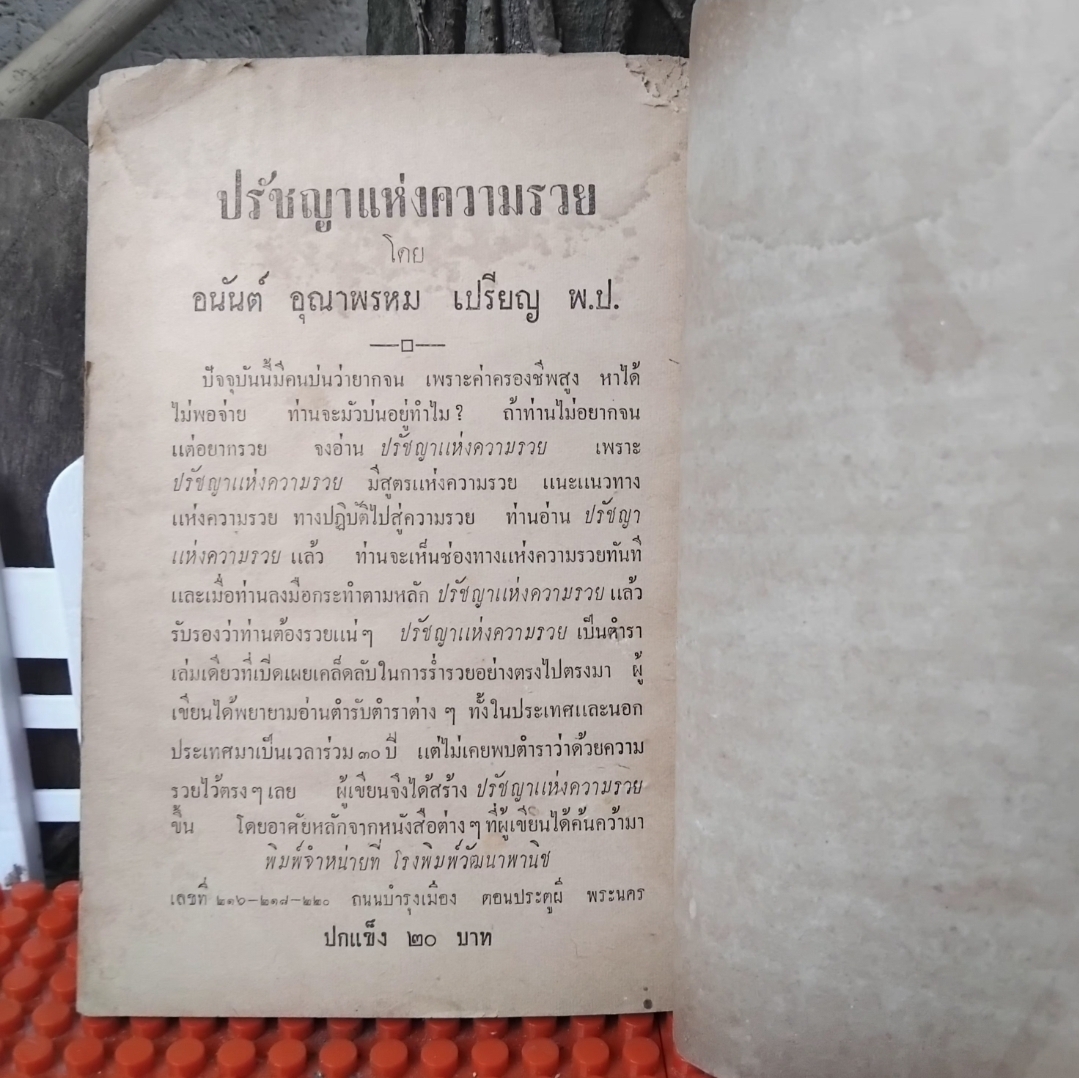 ปรัชญาแห่งความรวย
โดย
อนันต์ อุณาพรหม เปรียญ พ.ป.
ปัจจุบันนี้มีคนบ่นว่ายากจน เพราะค่าครองชีพสูง หาได้
ไม่พอจ่าย ท่านจะมัวบ่นอยู่ทำไม? ถ้าท่านไม่อยากจน
แต่อยากรวย จงอ่าน ปรัชญาแห่งความรวย เพราะ
ปรัชญาแห่งความรวย มีสูตรแห่งความรวย แนะแนวทาง
แห่งความรวย ทางปฏิบัติไปสู่ความรวย ท่านอ่าน ปรัชญา
แห่งความรวย แล้ว ท่านจะเห็นช่องทางแห่งความรวยทันที
และเมื่อท่านลงมือกระทำตามหลัก ปรัชญาแห่งความรวย แล้ว
รับรองว่าท่านต้องรวยแน่ๆ ปรัชญาแห่งความรวย เป็นตำรา
เล่มเดียวที่เปิดเผยเคล็ดลับในการร่ำรวยอย่างตรงไปตรงมา ผู้
เขียนได้พยายามอ่านตำรับตำราต่าง ๆ ทั้งในประเทศและนอก
ประเทศมาเป็นเวลาร่วม ๓๐ ปี แต่ไม่เคยพบตำราว่าด้วยความ
รวยไว้ตรง ๆ เลย ผู้เขียนจึงได้สร้าง ปรัชญาแห่งความรวย
ขึ้น โดยอาศัยหลักจากหนังสือต่าง ๆ ที่ผู้เขียนได้ค้นคว้ามา
พิมพ์จำหน่ายที่ โรงพิมพ์วัฒนาพานิช
เลขที่ ๒๑๖–๒๑๘–๒๒๐ ถนนบำรุงเมือง ตอนประตูผี พระนคร
ปกแข็ง ๒๐ บาท